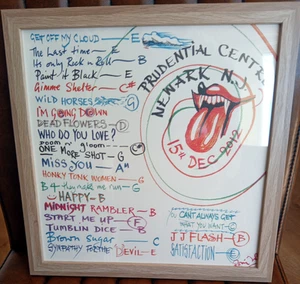 GET OFF MY CLOUD — E
The Last time — E
Its only Rock n Roll — B
Paint it Black — E
Gimme Shelter — C#
WILD HORSES — G
I'M GOING DOWN
DEAD FLOWERS — D
WHO DO YOU LOVE?
room n' gloom — G
ONE MORE SHOT — G
MISS YOU — Am
HONKY TONK WOMEN — G
B 4 they make me run — G
HAPPY — B
MIDNIGHT RAMBLER — B
START ME UP — F
TUMBLIN DICE — B
Brown Sugar — C
SYMPATHY FOR THE DEVIL — E
PRUDENTIAL CENTRE
NEWARK N.J
15th DEC 2012
YOU CANT ALWAYS GET
WHAT YOU WANT — C
JJ FLASH — B
SATISFACTION — E